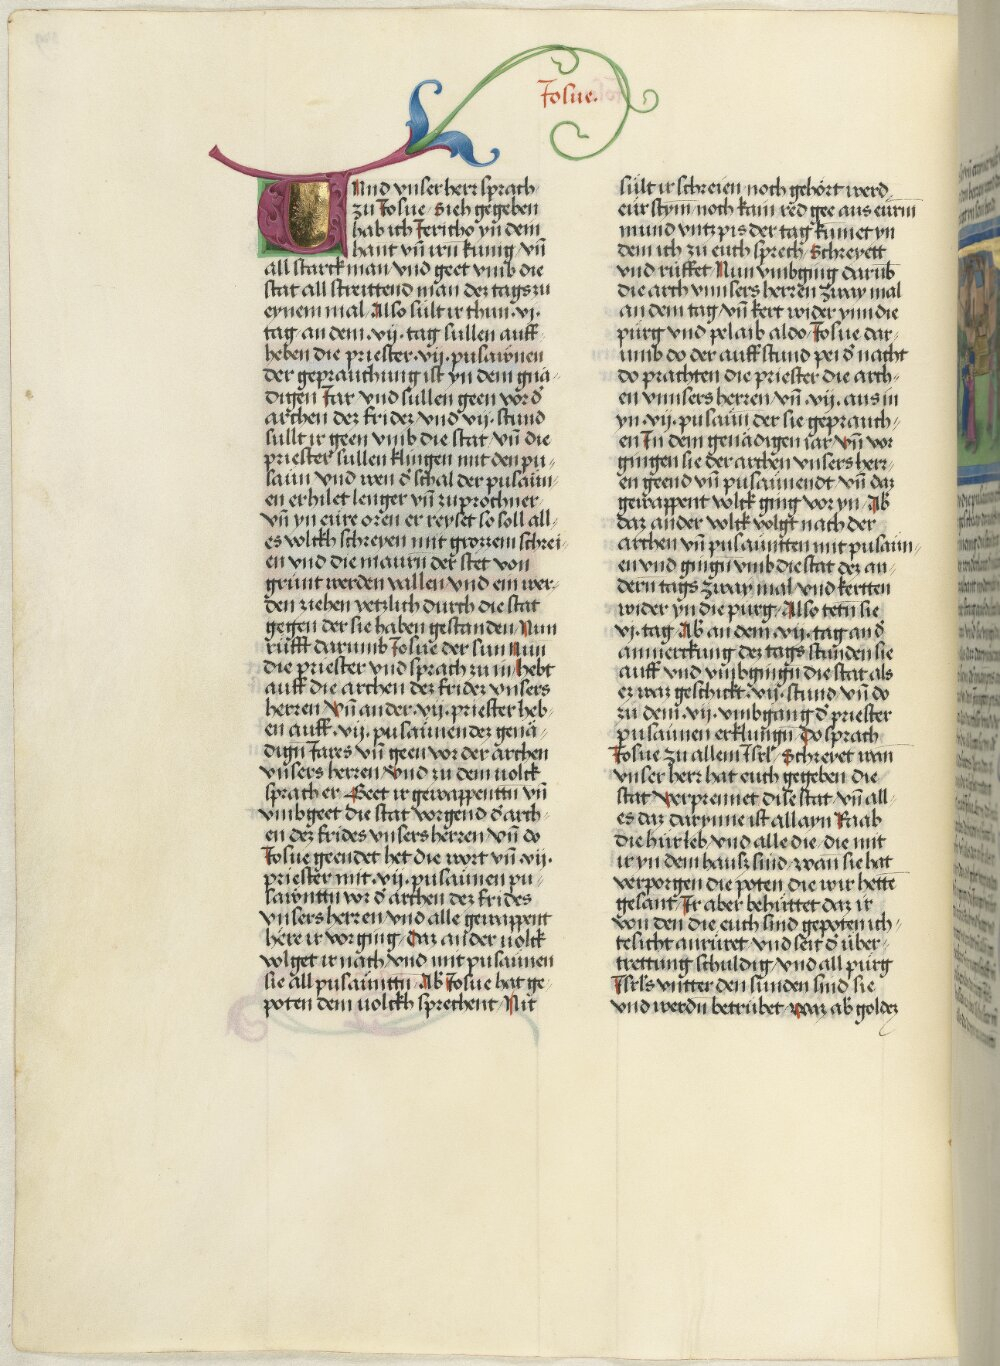 Josue.
Und vnser herr sprach
zu Josue Sieh gegeben
hab ich Jericho yn dein
hant vñ irñ kunig / vñ
all starck man vnd geet vmb die
stat all streittend man dez tags zu
eynem mal / Also sült ir thun .vj.
tag an dem .vij. tag sullen auff
heben die priester .vij. pusawnen
der geprauchung ist yn dem gnä-
digen Jar vnd sullen geen vor d̕
archen dez frides vnd vij. stund
sullt ir geen vmb die stat / vñ die
priester sullen klingen mit den pu-
saun vnd wen d̕ schal der pusaun-
en erhilet lenger vñ zuprochner
vñ yn eure oren er reyset so soll all-
es volckh schreyen mit grozzem schrei-
en vnd die maurn der stet von
grunt werden vallen vnd ein wer-
den ziehen yetzlich durch die stat
gegen der sie haben gestanden / Nun
rüfft darumb Josue der sun Nun
die priester vnd sprach zu in hebt
auff die archen dez frides vnsers
herren Vñ ander .vij. priester heb-
en auff .vij. pusaunen dez genä-
digñ Jares vñ geen vor der archen
vnsers herren Vnd zu dem volck
sprach er Geet ir gewappentñ vñ
vmbgeet die stat vorgend d̕ arch-
en dez frides vnsers herren vñ do
Josue geendet het die wort vñ .vij.
priester mit .vij. pusaunen pu-
sawntñ vor d̕ archen dez frides
vnsers herren vnd alle gewappent
here ir vor ging / Daz ander volck
volget ir nach / vnd mit pusaunen
sie all pusauntñ Ab Josue hat ge-
poten dem volckh sprechent / Nit
sült ir schreien / noch gehört werd
eür stym noch kain red gee aus eürm
mund vntz pis der tag kumet yn
dem ich zu euch sprech / Schreyett
vnd rüffet Nun vmbging darüb
die arch vnnsers herren zway mal
an dem tag vñ kert wider ynn die
pürg vnd pelaib aldo / Josue dar-
umb do der auff stund pei d̕ nacht
do prachten die priester die arch-
en vnnsers herren vñ .vij. aus in
yn .vij. pusaun der sie geprauch-
en In dem genädigen iar vñ vor
gingen sie der archen vnsers herr-
en geend vñ pusaunendt vñ daz
gewappent volck ging vor yn / Ab
daz ander volck volgt nach der
archen vñ pusauntten mit pusaun-
en vnd gingñ vmb die stat dez an-
dern tags zway mal / vnd kertten
wider yn die purg / Also tetñ sie
vj. tag Ab an dem .vij. tag an d̕
anmerckung dez tags stunden sie
auff vnd vmbgingñ die stat als
er waz geschickt .vij. stund vñ do
zu dem .vij. vmbgang d̕ priester
pusaunen erklungñ Do sprach
Josue zu allem Isrl̕ Schreyet wan
vnser herr hat euch gegeben die
stat Verprennet dise stat vñ all-
es daz darynne ist allayn Raab
die hür leb / vnd alle die / die mit
ir yn dem hausz sind / wan sie hat
verporgen die poten die wir hette
gesant / Ir aber behüttet daz ir
von den die euch sind gepoten ich-
tesicht anrüret vnd seit d̕ über-
trettung schuldig / vnd all pürg
Isrls vntter den sunden sind sie
vnd werdñ betrübet / waz ab goldez